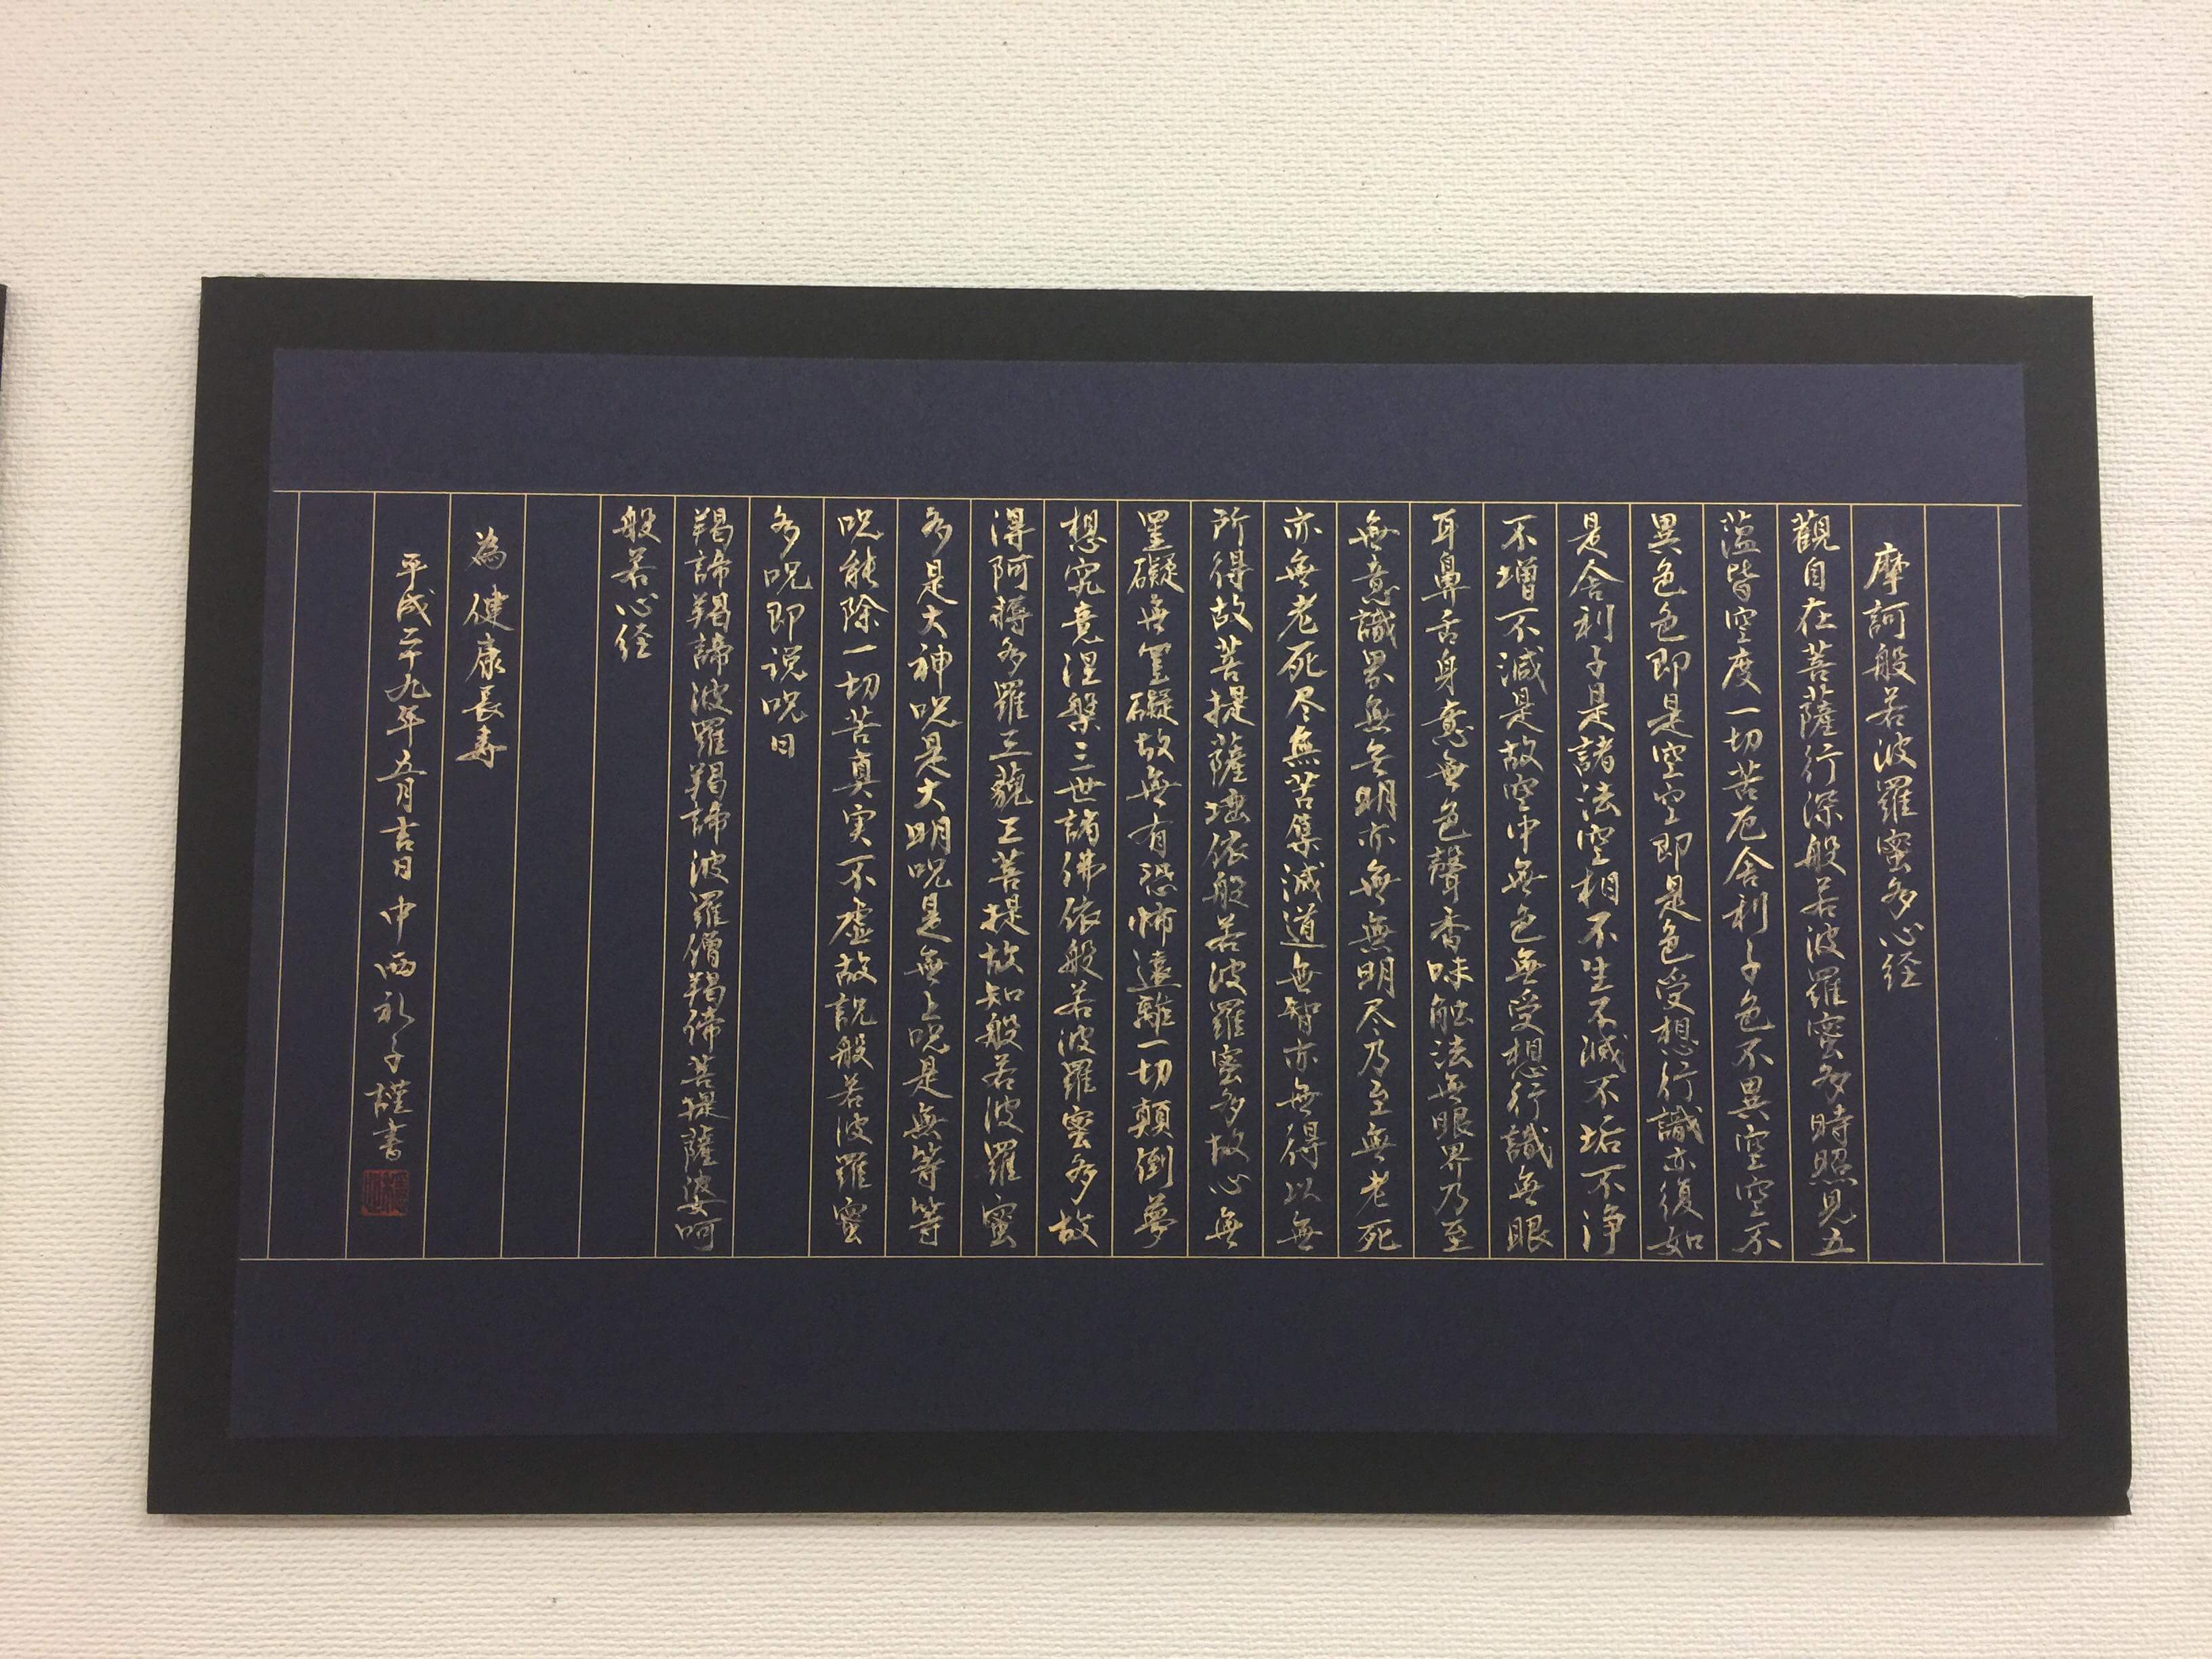 摩訶般若波羅蜜多心経
觀自在菩薩行深般若波羅蜜多時照見五
蕴皆空度一切苦厄舍利子色不異空空不
異色色即是空空即是色受想行識亦復如
是舍利子是諸法空相不生不滅不垢不浄
不増不減是故空中無色無受想行識無眼
耳鼻舌身意無色聲香味触法無眼界乃至
無意識界無無明亦無無明尽乃至無老死
亦無老死尽無苦集滅道無智亦無得以無
所得故菩提薩埵依般若波羅蜜多故心無
罣礙無罣礙故無有恐怖遠離一切顛倒夢
想究竟涅槃三世諸佛依般若波羅蜜多故
得阿耨多羅三藐三菩提故知般若波羅蜜
多是大神呪是大明呪是無上呪是無等等
呪能除一切苦真実不虚故説般若波羅蜜
多呪即説呪曰
羯諦羯諦波羅羯諦波羅僧羯諦菩提薩婆呵
般若心経
為健康長寿
平成二十九年五月吉日中西礼子謹書